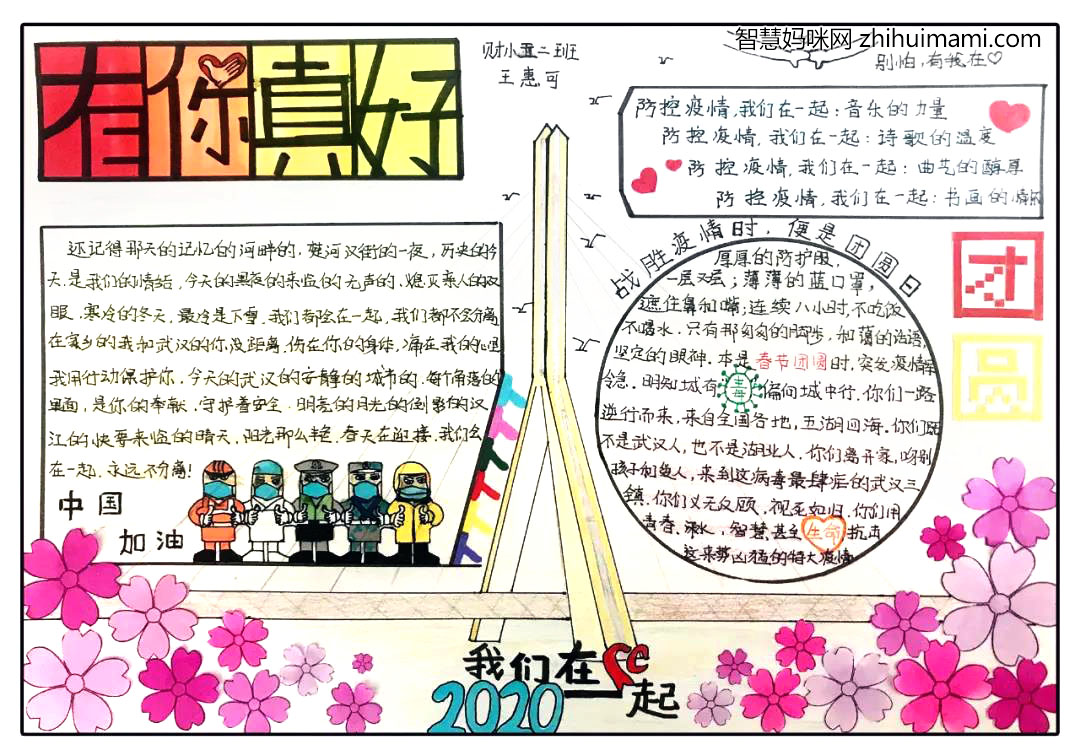 智慧妈咪网 zhihuimami.com
有你真好
财小五二班
王惠可
别怕，有我在
防控疫情，我们在一起：音乐的力量
防控疫情，我们在一起：诗歌的温度
防控疫情，我们在一起：曲艺的醇厚
防控疫情，我们在一起：书画的情
还记得那天的记忆的河畔的，楚河汉街的一夜，历史的今
天，是我们的情结，今天的黑夜的来临的无声的，熄灭亲人的双
眼，寒冷的冬天，最冷是下雪，我们都会在一起，我们都不会分离
在家乡的我和武汉的你没距离，伤在你的身体，痛在我的心里
我用行动保护你，今天的武汉的安静的城市的，每个角落的
里面，是你的奉献，守护着安全，明亮的月光的倒影的汉
江的快要来临的晴天，阳光那么艳，春天在迎接，我们会
在一起，永远不分离！
中国
加油
战胜疫情时，便是团圆日
厚厚的防护服，
一层又层；薄薄的蓝口罩，
遮住鼻和嘴；连续八小时，不吃饭
不喝水，只有那匆匆的脚步，和蔼的话语，
坚定的眼神。本是春节团圆时，突发疫情
令急。明知城有毒 偏向城中行，你们一路
逆行而来，来自全国各地，五湖四海，你们既
不是武汉人，也不是湖北人，你们离开家，吻别
孩子和亲人，来到这病毒最肆虐的武汉三
镇，你们义无反顾，视死如归，你们用
青春、汗水，智慧甚至生命抗击
这来势凶猛的特大疫情
团
圆
我们在一起
2020